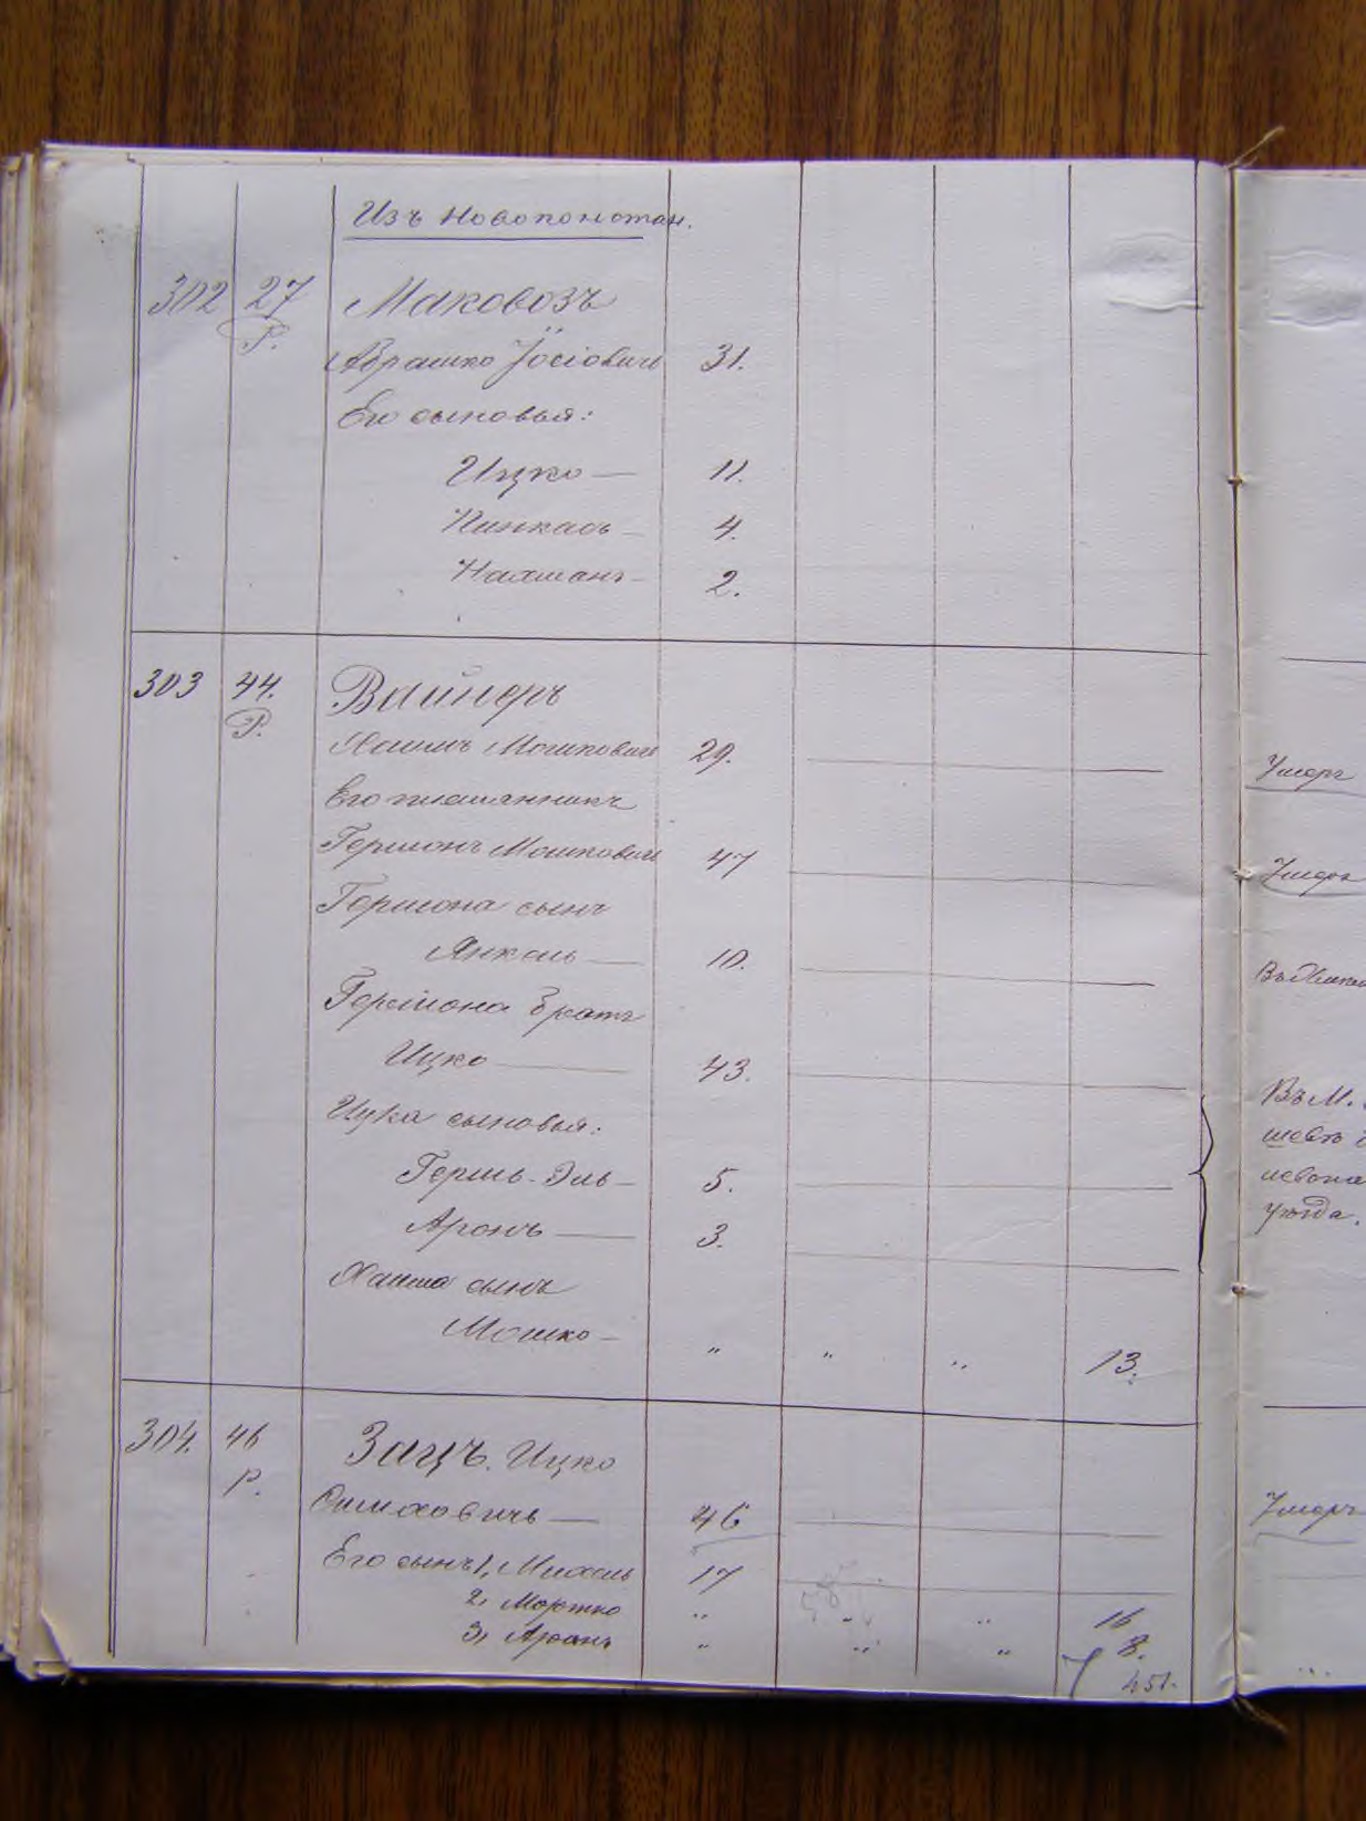 Изъ Новопоконстан.
302 27 Маковозъ
Р.
Абрашко Јосіовичъ 31.
Его сыновья:
Ицко — 11.
Пинкасъ — 4.
Нахманъ — 2.
303 44. Вайнеръ
Р.
Хаимъ Мошковичъ 29. Умеръ
Его племянникъ
Гершонъ Мошковичъ 47 Умеръ
Гершона сынъ
Янкель — 10.
Гершона братъ
Ицко — 43.
Ицка сыновья: Въ М.
Гершъ-Эль — 5.
Аронъ — 3. уѣзда.
Хаима сынъ
Мошко — " " " 13.
304. 46 Зацъ. Ицко
Р.
Симховичъ — 46 Умеръ
Его сынъ 1, Михель 17
2, Мортко " " " 16
3, Аронъ " " " 8.
451.